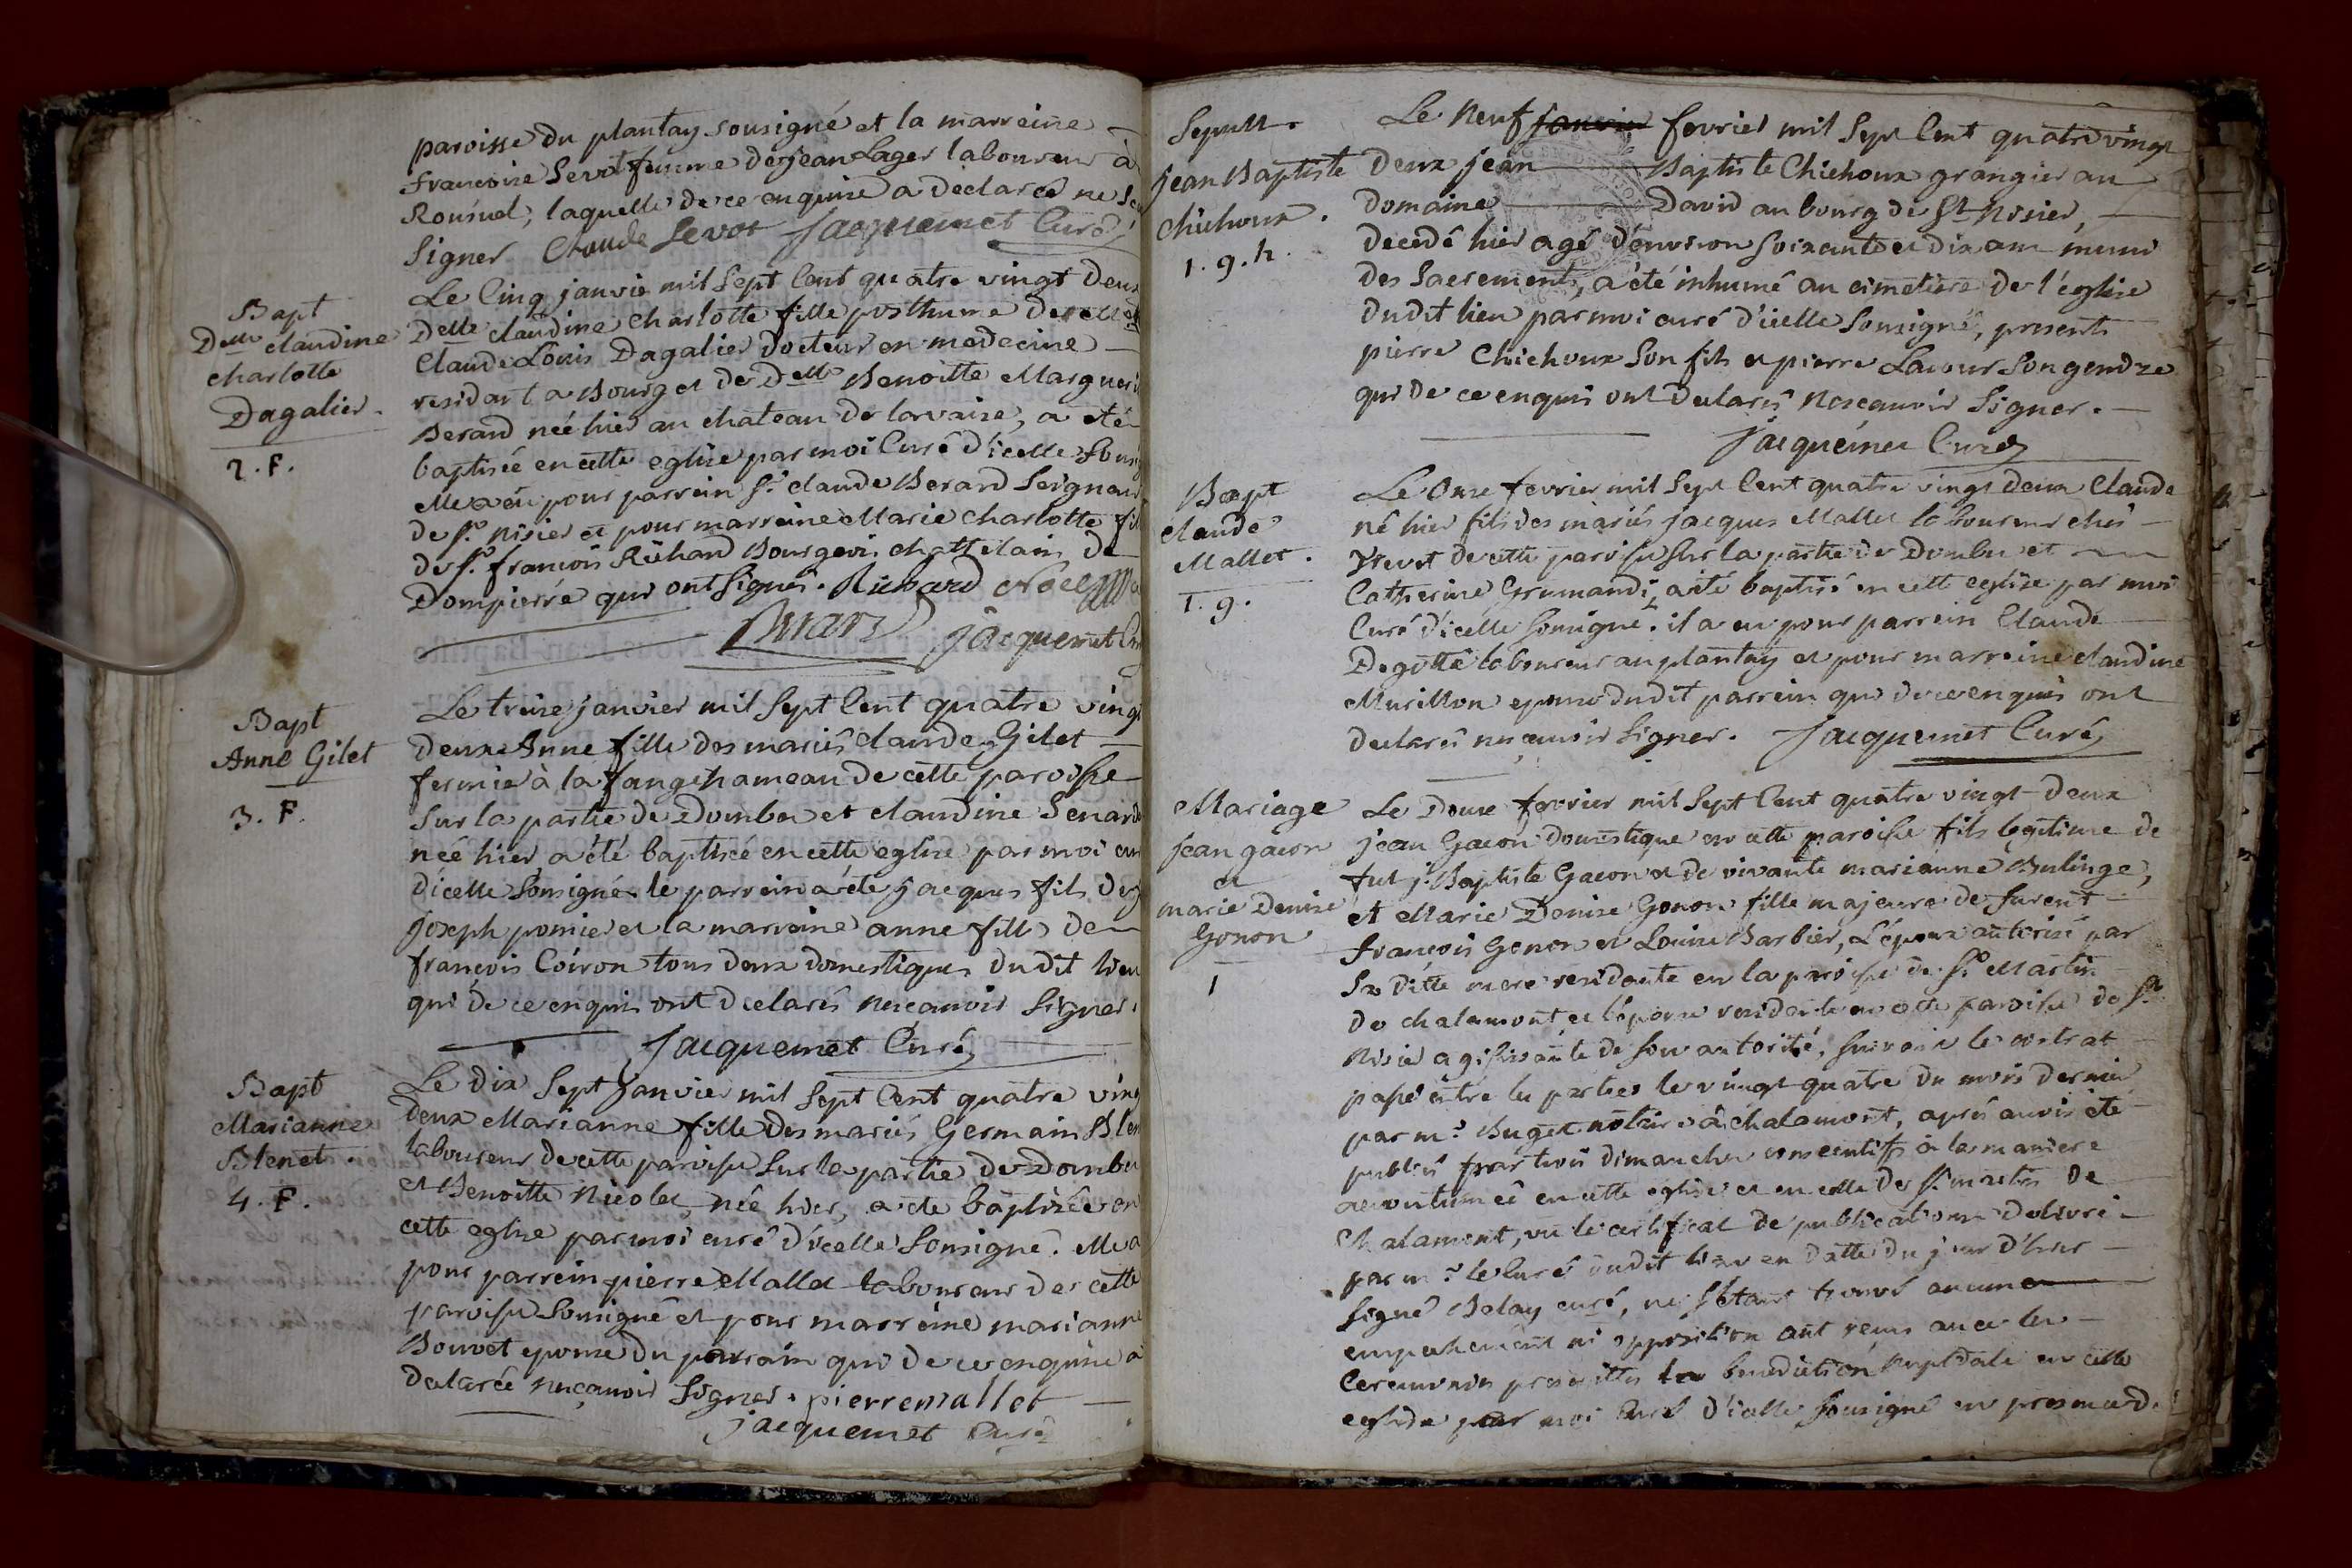 paroisse du plantay sousigné et la marreine
francoise Sevot femme de jean Lager laboureur à
Rousuel, laquelle de ce enquise a declarée ne
signer Claude Sevot Jacquemet Curé
Bapt
Delle claudine
charlotte
Dagalier.
2. F.
Le Cinq janvie mil Sept Cent quatre vingt Deux
Delle claudine charlotte fille posthume de
Claude Louis Dagalier Docteur en medecine
residant a Bourg et de Delle Benoitte
Berand née hier au chateau de lorvaise, a été
baptisée en cette eglise par moi Curé d'icelle
elle a eu pour parrein Sr claude Berard Seigneur
de St nisier et pour marreine Marie charlotte
de Sr francois Richard Bourgeois chattelain de
Dompierre qui ont signés. Richard
Jacquemet
Bapt
Anne Gilet
3. F.
Le treise janvier mil Sept Cent quatre vingt
Deux Anne fille des mariés claude Gilet
fermie à la fange hameau de cette paroisse
Sur la partie de Dombes et claudine
née hier a été baptisée en cette eglise par moi
d'icelle sousigné le parrein a été jacques fils de
joseph pomier et la marreine anne fille de
francois Coiron tous deux domestiques dudit lieu
qui de ce enquis ont declarés nescauoir Signer.
Jacquemet Curé
Bapt
Marianne
Blenet.
4. F.
Le dix Sept janvier mil Sept Cent quatre
deux Marianne fille des mariés Germain
laboureur de cette paroisse Sur la partie de Dombes
et Benoitte Nicolet née hier, a été baptisée en
cette eglise par moi curé d'icelle Sousigné. elle a
pour parrein pierre Mallet laboureur de cette
paroisse Sousigné et pour marreine marianne
Bouvet epouse du parrain qui de ce enquise a
declarée nesçauoir Signer. pierre mallet
jacquemet Curé
Sepult.
jean Baptiste
Chichoux.
1. g. h.
Le Neuf janvier fevrier mil Sept Cent quatre vingt
Deux jean Baptiste Chichoux grangier au
Domaine David au bourg de St Nisier,
decedé hier agé d'environ soixante et dix ans muni
des Sacrements, a été inhumé au cimetiere de l'église
dudit lieu par moi curé d'icelle sousigné, presents
pierre Chichoux Son fils et pierre Lacour Son gendre
qui de ce enquis ont declarés nescauoir Signer.
Jacquemet Curé
Bapt
claude
Mallet.
1. g.
Le Onze fevrier mil Sept Cent quatre vingt deux Claude
né hier fils des mariés jacques Mallet laboureur chés
de cette paroisse Sur la partie de Dombes et
Catherine Grumandi, a été baptisé en cette eglise par moi
Curé d'icelle sousigné. il a eu pour parrein Claude
Degotte laboureur au plantay et pour marreine claudine
Murillon epouse dudit parrein qui de ce enquis ont
declarés nesçauoir Signer. Jacquemet Curé
Mariage
jean gacon
et
marie Denise
Gonon
1
Le Douze fevrier mil Sept Cent quatre vingt deux
jean Gacon Domestique en cette paroisse fils legitime de
fut j. Baptiste Gacon et de vivante marianne Bulinge,
et Marie Denise Gonon fille majeure de furent
francois Gonon et Louise Barbier, L'époux autorisé par
Sa ditte mere residente en la paroisse de St Martin
de chalamont et l'épouse residente en cette paroisse de St
Nisie agissante de son autorité, suivant le contrat
passé entre les parties le vingt quatre du mois dernier
par mr Buget notaire à chalamont, après auoir été
publiés par trois dimanches consecutifs à la maniere
accoutumée en cette eglise et en celle de St martin de
Chalamont, vu le certificat de publications Delivré
par mr le Curé dudit lieu en datte du jour d'hier
signé Belay curé, ne s'étant trouvé aucun
empechement ni opposition ont reçus avec les
Ceremonies prescrittes la benediction nuptiale en cette
eglise par moi Curé d'icelle sousigné en presence de